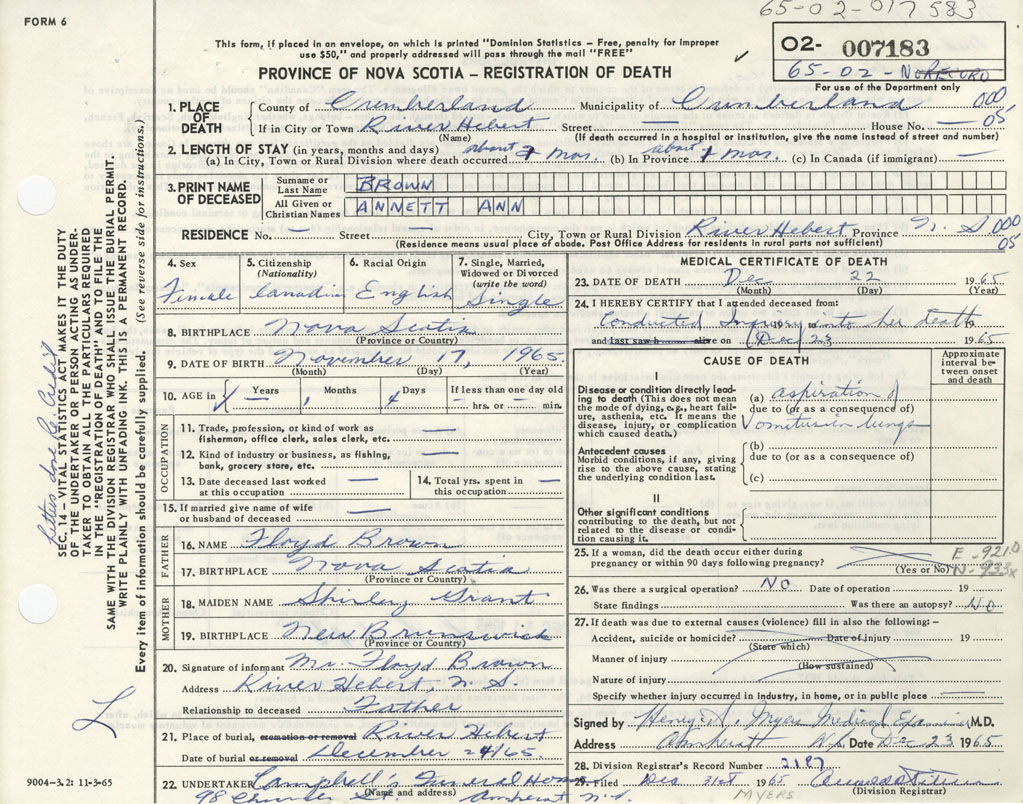 FORM 6
65-02-017583
This form, if placed in an envelope, on which is printed "Dominion Statistics – Free, penalty for improper
use $50," and properly addressed will pass through the mail "FREE"
02- 007183
65-02- NO RECORD
For use of the Department only
PROVINCE OF NOVA SCOTIA – REGISTRATION OF DEATH
1. PLACE OF DEATH { County of Cumberland Municipality of Cumberland 000
If in City or Town River Hebert Street — House No. — 05
(Name) (If death occurred in a hospital or institution, give the name instead of street and number)
2. LENGTH OF STAY (in years, months and days) about about
(a) In City, Town or Rural Division where death occurred 1 mos. (b) In Province 1 mos. (c) In Canada (if immigrant) —
3. PRINT NAME OF DECEASED
Surname or Last Name BROWN
All Given or Christian Names ANNETT ANN
RESIDENCE No. — Street — City, Town or Rural Division River Hebert Province N. S 000
05
(Residence means usual place of abode. Post Office Address for residents in rural parts not sufficient)
4. Sex Female
5. Citizenship (Nationality) Canadian
6. Racial Origin English
7. Single, Married, Widowed or Divorced (write the word) Single
8. BIRTHPLACE Nova Scotia
(Province or Country)
9. DATE OF BIRTH November 17, 1965
(Month) (Day) (Year)
10. AGE in { Years — Months 1 Days 4 If less than one day old — hrs. or — min.
OCCUPATION
11. Trade, profession, or kind of work as fisherman, office clerk, sales clerk, etc. —
12. Kind of industry or business, as fishing, bank, grocery store, etc. —
13. Date deceased last worked at this occupation —
14. Total yrs. spent in this occupation —
15. If married give name of wife or husband of deceased —
FATHER
16. NAME Floyd Brown
17. BIRTHPLACE Nova Scotia
(Province or Country)
MOTHER
18. MAIDEN NAME Shirley Grant
19. BIRTHPLACE New Brunswick
(Province or Country)
20. Signature of informant Mr. Floyd Brown
Address River Hebert, N. S.
Relationship to deceased Father
21. Place of burial, cremation or removal River Hebert
Date of burial or removal December 24/65
22. UNDERTAKER Campbell's Funeral Home
(Name and address)
98 Church St. Amherst N.S.
MEDICAL CERTIFICATE OF DEATH
23. DATE OF DEATH Dec 22 1965
(Month) (Day) (Year)
24. I HEREBY CERTIFY that I attended deceased from:
Conducted Inquiry 19 into her death 19
and last saw h alive on (Dec) 23 1965
CAUSE OF DEATH
Approximate interval between onset and death
I
Disease or condition directly leading to death (This does not mean the mode of dying, e.g., heart failure, asthenia, etc. It means the disease, injury, or complication which caused death.)
(a) aspiration of
due to (or as a consequence of)
Vomitus in lungs
Antecedent causes
Morbid conditions, if any, giving rise to the above cause, stating the underlying condition last.
(b)
due to (or as a consequence of)
(c)
II
Other significant conditions
contributing to the death, but not related to the disease or condition causing it.
25. If a woman, did the death occur either during pregnancy or within 90 days following pregnancy?
(Yes or No)
E-921.0
N-933x
26. Was there a surgical operation? NO Date of operation 19
State findings Was there an autopsy? No
27. If death was due to external causes (violence) fill in also the following:–
Accident, suicide or homicide? Date of injury 19
(State which)
Manner of injury
(How sustained)
Nature of injury
Specify whether injury occurred in industry, in home, or in public place —
Signed by Henry A. Myers Medical Examiner M.D.
Address Amherst N.S. Date Dec 23 1965
28. Division Registrar's Record Number 2187
29. Filed Dec 31st 1965
MYERS (Division Registrar)
9004-3.2: 11-3-65
SEC. 14 – VITAL STATISTICS ACT MAKES IT THE DUTY
OF THE UNDERTAKER OR PERSON ACTING AS UNDER-
TAKER TO OBTAIN ALL THE PARTICULARS REQUIRED
IN THE "REGISTRATION OF DEATH" AND TO FILE THE
SAME WITH THE DIVISION REGISTRAR WHO SHALL ISSUE THE BURIAL PERMIT.
WRITE PLAINLY WITH UNFADING INK. THIS IS A PERMANENT RECORD.
Every item of information should be carefully supplied. (See reverse side for instructions.)